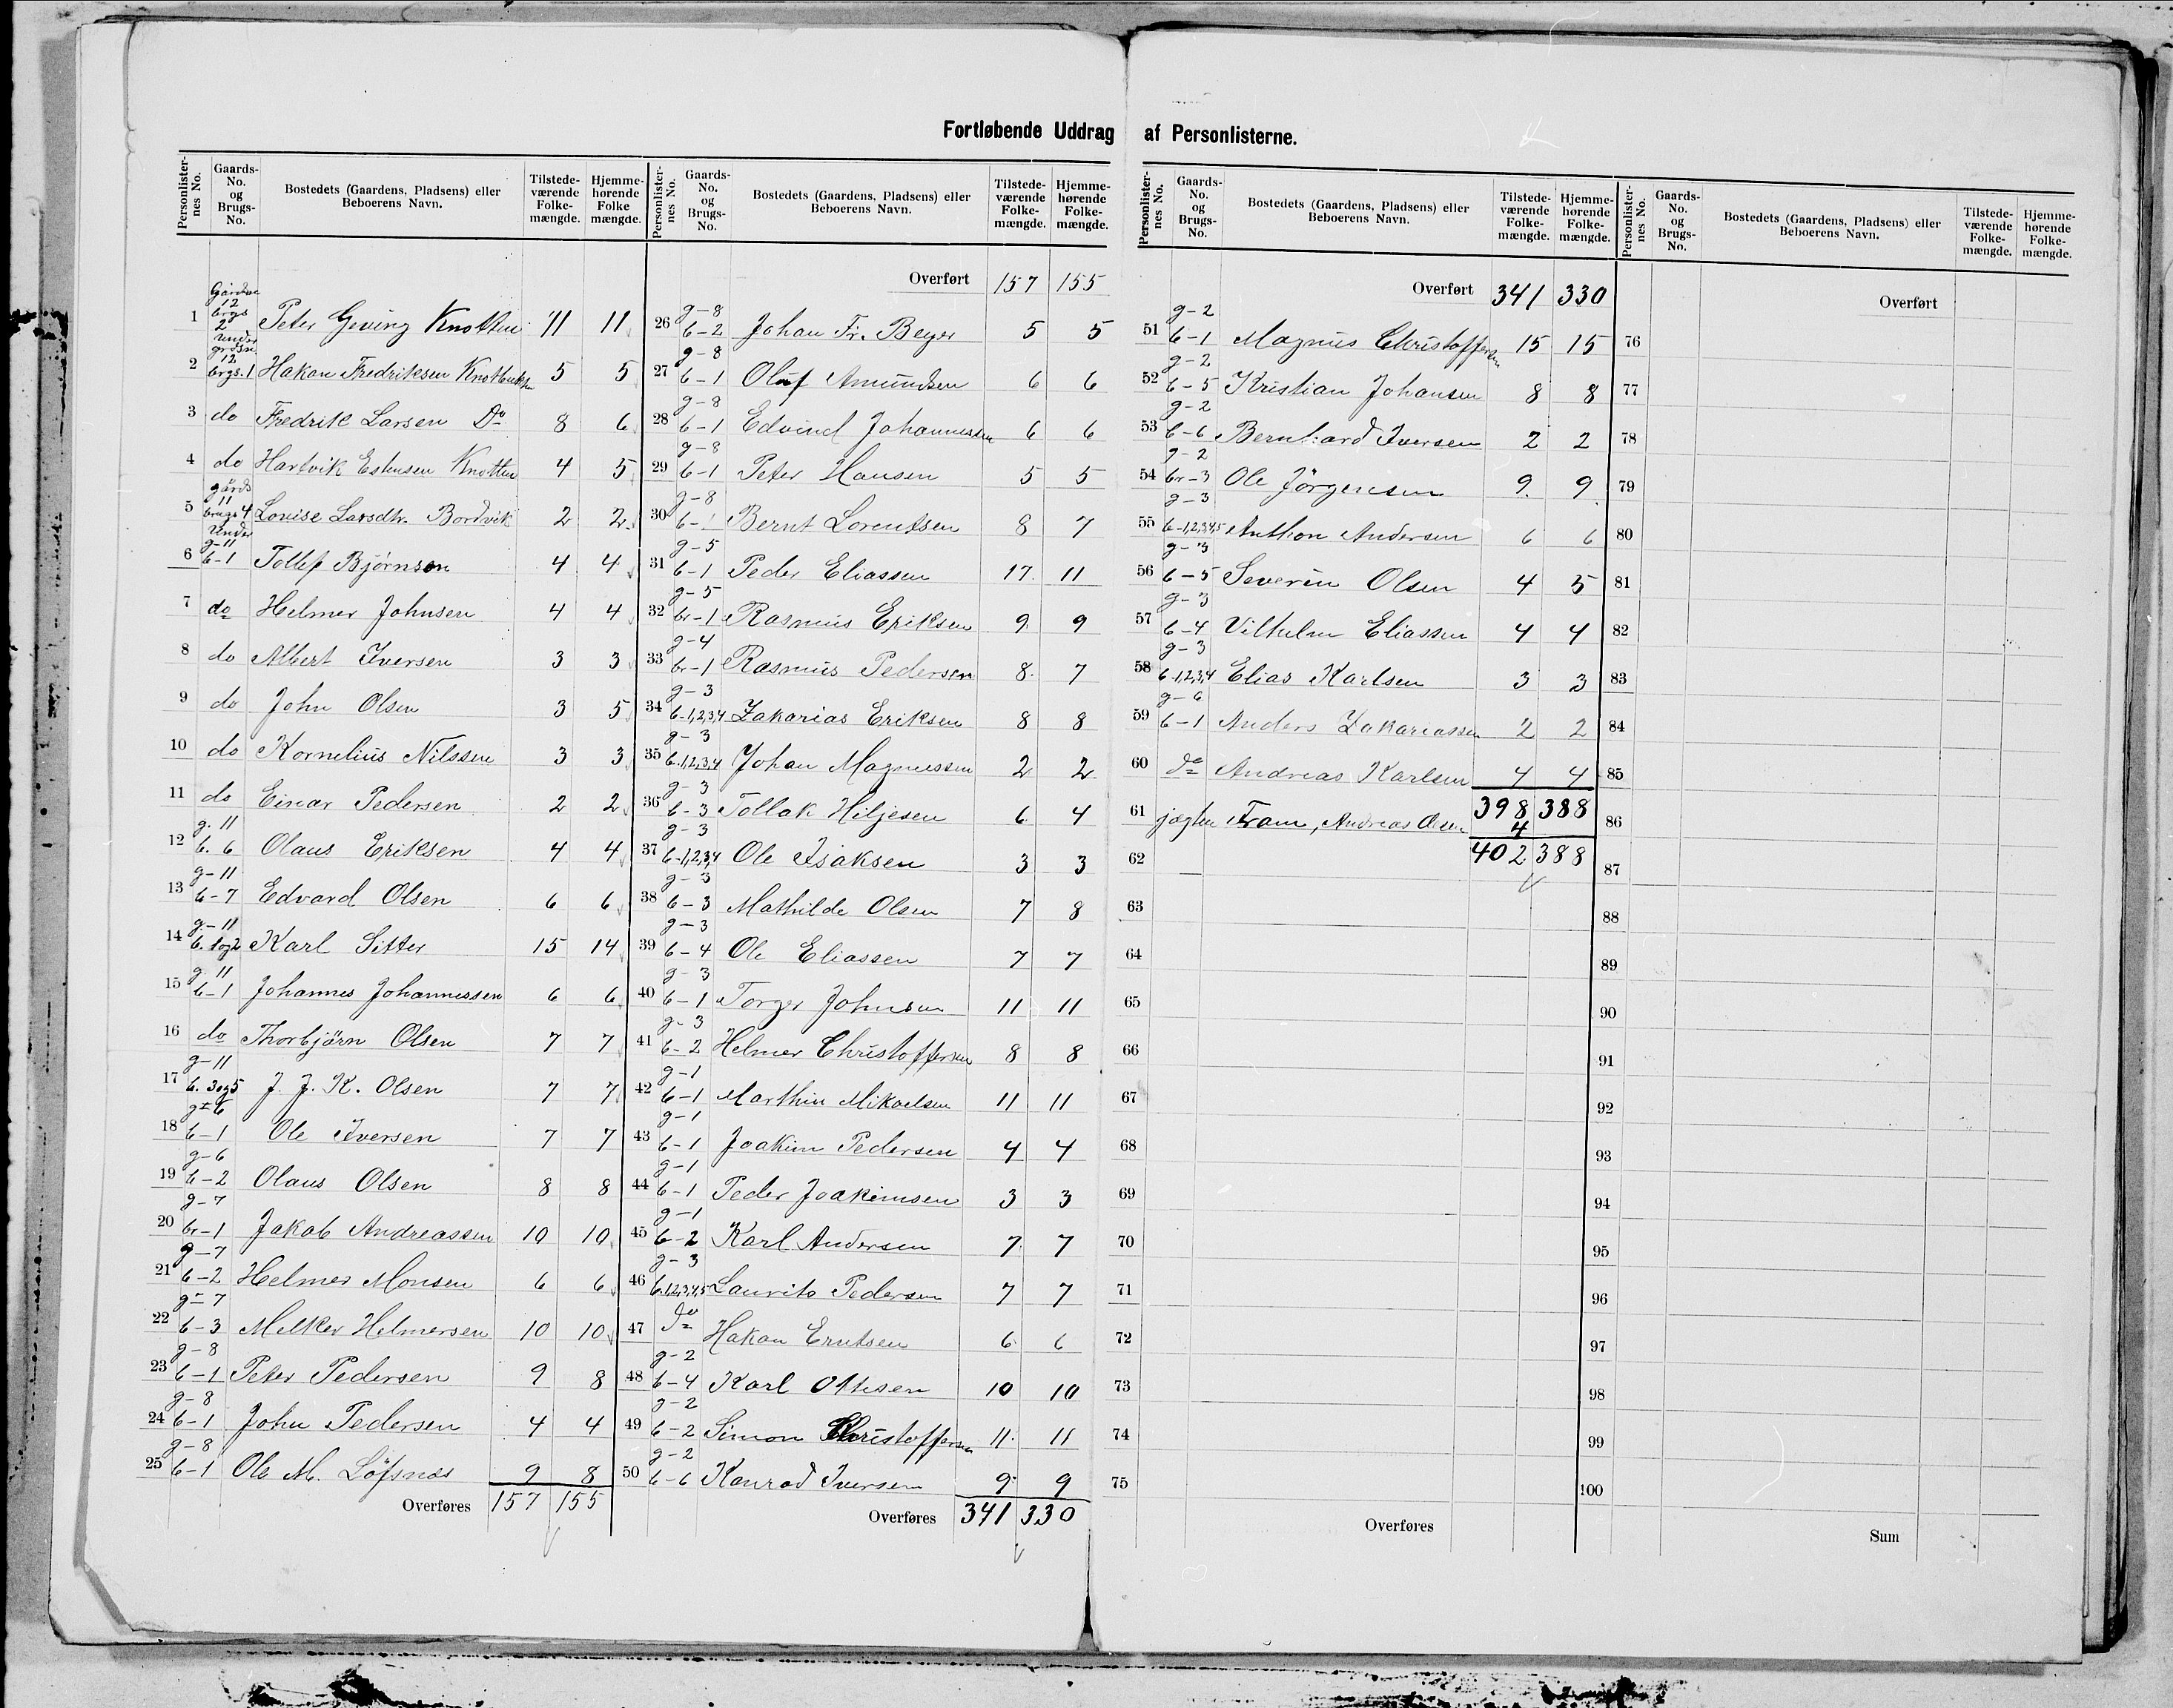 Fortløbende Uddrag af Personlisterne.
Personlisternes No. Gaards-No. og Brugs-No. Bostedets (Gaardens, Pladsens) eller Beboerens Navn. Tilstedeværende Folkemængde. Hjemmehørende Folke mængde.
Gårdsn 12 brgs 2
1 Peter Geving Knotten 11 11
under grdsn. 12 brgs. 1
2 Hakon Fredriksen Knottbakken 5 5
3 do Fredrik Larsen Do 8 6
4 do Hartvik Estensen Knotten 4 5
gårds 11 brugs 4
5 Louise Larsdtr. Bordvik 2 2
Under g-11
6 b-1 Tollef Bjørnson 4 4
7 do Helmer Johnsen 4 4
8 do Albert Iversen 3 3
9 do John Olsen 3 5
10 do Kornelius Nilssen 3 3
11 do Einar Pedersen 2 2
g. 11
12 b. 6 Olaus Eriksen 4 4
g-11
13 b-7 Edvard Olsen 6 6
g-11
14 b. 1og2 Karl Sitter 15 14
g. 11
15 b-1 Johannes Johannessen 6 6
16 do Thorbjörn Olsen 7 7
g-11
17 b. 3og5 J. J. K. Olsen 7 7
g-6
18 b-1 Ole Iversen 7 7
g-6
19 b-2 Olaus Olsen 8 8
g-7
20 br-1 Jakob Andreassen 10 10
g-7
21 b-2 Helmer Monsen 6 6
g-7
22 b-3 Melker Helmersen 10 10
g-8
23 b-1 Peter Pedersen 9 8
g-8
24 b-1 John Pedersen 4 4
g-8
25 b-1 Ole M. Löfsnæs 9 8
Overføres 157 155
Personlisternes No. Gaards-No. og Brugs-No. Bostedets (Gaardens, Pladsens) eller Beboerens Navn. Tilstedeværende Folkemængde. Hjemmehørende Folkemængde.
Overført 157 155
g-8
26 b-2 Johan Fr. Beyer 5 5
g-8
27 b-1 Oluf Amundsen 6 6
g-8
28 b-1 Edvind Johannessen 6 6
g-8
29 b-1 Peter Hansen 5 5
g-8
30 b-1 Bernt Lorentsen 8 7
g-5
31 b-1 Peder Eliassen 17 11
g-5
32 br-1 Rasmus Eriksen 9 9
g-4
33 br-1 Rasmus Pedersen 8 7
g-3
34 b-1,2,3,4 Zakarias Eriksen 8 8
g-3
35 b.1,2,3,4 Johan Magnussen 2 2
g-3
36 b-3 Tollak Hiljesen 6 4
g-3
37 b-1,2,3,4 Ole Isaksen 3 3
g-3
38 b-3 Mathilde Olsen 7 8
g-3
39 b-4 Ole Eliassen 7 7
g-3
40 b-1 Torger Johnsen 11 11
g-3
41 b-2 Helmer Christoffersen 8 8
g-1
42 b-1 Marthin Mikaelsen 11 11
g-1
43 b-1 Joakim Pedersen 4 4
g-1
44 b-1 Peder Joakimsen 3 3
g-1
45 b-2 Karl Andersen 7 7
g-3
46 b.1,2,3,4,5 Laurits Pedersen 7 7
47 do Hakon Erntsen 6 6
g-2
48 b-4 Karl Ottesen 10 10
g-2
49 b-2 Simon Christoffersen 11 11
g-2
50 b-6 Konrad Iversen 9 9
Overføres 341 330
Personlisternes No. Gaards-No. og Brugs-No. Bostedets (Gaardens, Pladsens) eller Beboerens Navn. Tilstedeværende Folkemængde. Hjemmehørende Folkemængde.
Overført 341 330
g-2
51 b-1 Magnus Christoffersen 15 15
g-2
52 b-5 Kristian Johansen 8 8
g-2
53 b-6 Bernhard Iversen 2 2
g-2
54 br-3 Ole Jörgensen 9 9
g-3
55 b-1,2,3,4,5 Anthon Andersen 6 6
g-3
56 b-5 Severin Olsen 4 5
g-3
57 b-4 Vilhelm Eliassen 4 4
g-3
58 b.1,2,3,4 Elias Karlsen 3 3
g-6
59 b-1 Anders Zakariassen 2 2
60 do Andreas Karlsen 4 4
398 388
61 jægten Fram, Andreas Olsen 4
62 402 388
63
64
65
66
67
68
69
70
71
72
73
74
75
Overføres
Personlisternes No. Gaards-No. og Brugs-No. Bostedets (Gaardens, Pladsens) eller Beboerens Navn. Tilstedeværende Folkemængde. Hjemmehørende Folkemængde.
Overført
76
77
78
79
80
81
82
83
84
85
86
87
88
89
90
91
92
93
94
95
96
97
98
99
100
Sum